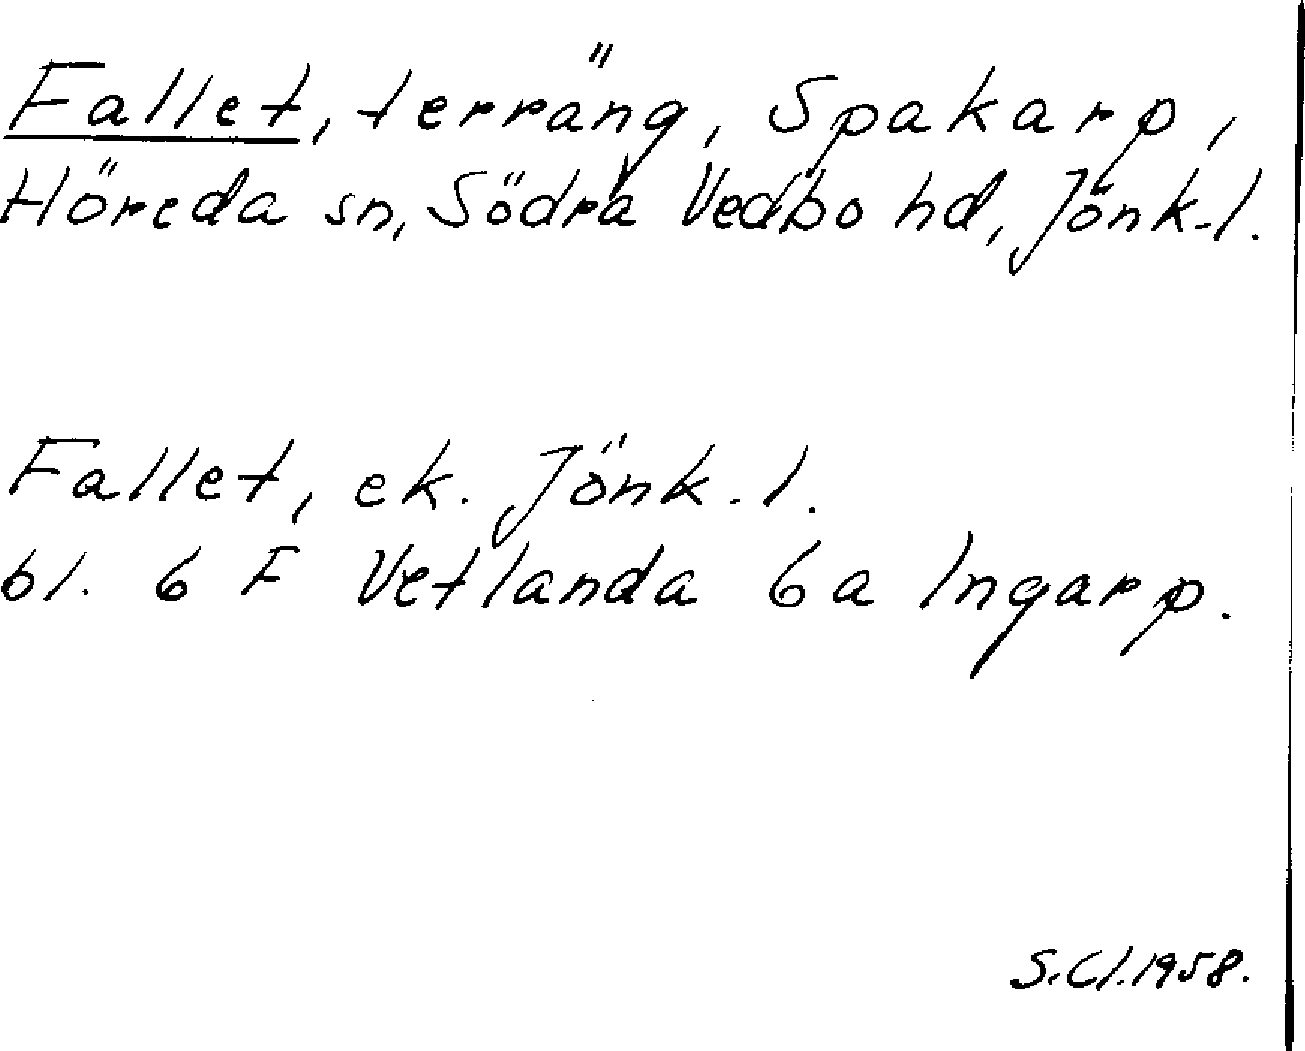 Fallet, terräng, Spakarp,
Höreda sn, Södra Vedbo hd, Jönk.l.
Fallet, ek. Jönk.l.
bl. 6 F Vetlanda 6a Ingarp.
S.Cl.1958.